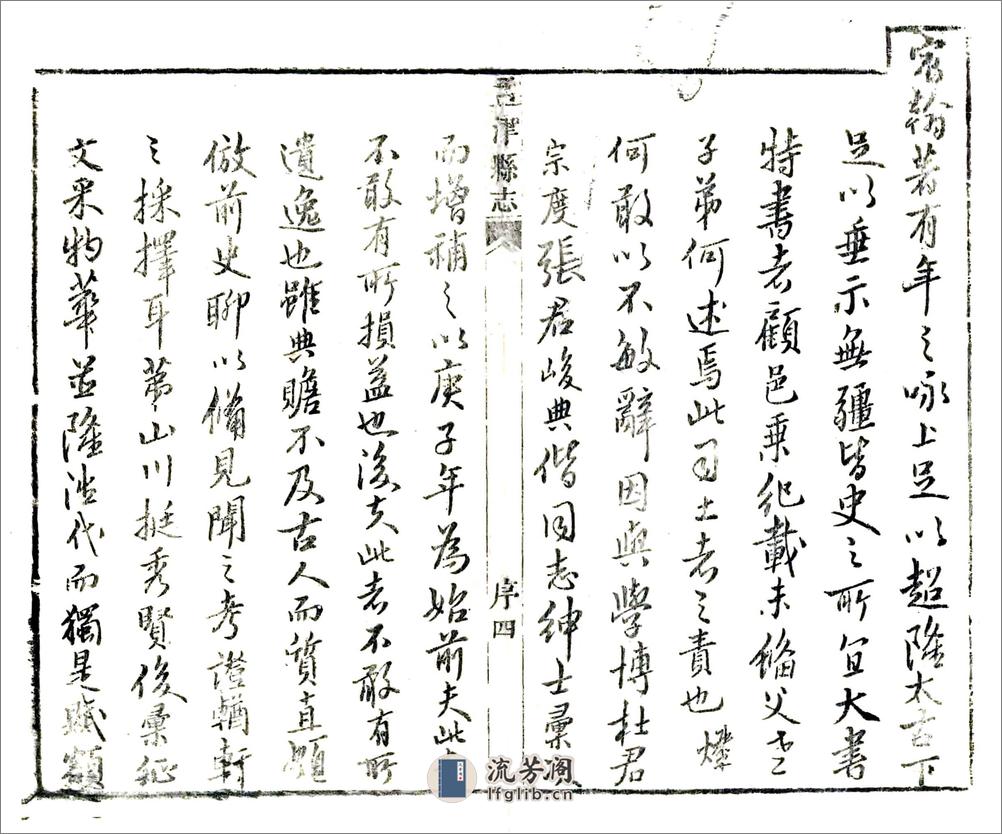 宸翰著有年之咏上足以超隆太古下
足以垂示無疆皆史之所宜大書
特書者顧邑乗紀載未備父老
子弟何述焉此司土者之責也燦
何敢以不敏辭因與學博杜君
宗度張君峻典偕同志紳士彙
孟津縣志
序四
而增補之以庚子年為始前夫此
不敢有所損益也後夫此者不敢有所
遺逸也雖典贍不及古人而質直頗
倣前史聊以備見聞之考證輶軒
之採擇耳第山川挺秀賢俊彙征
文采物華並隆往代而獨是賦額